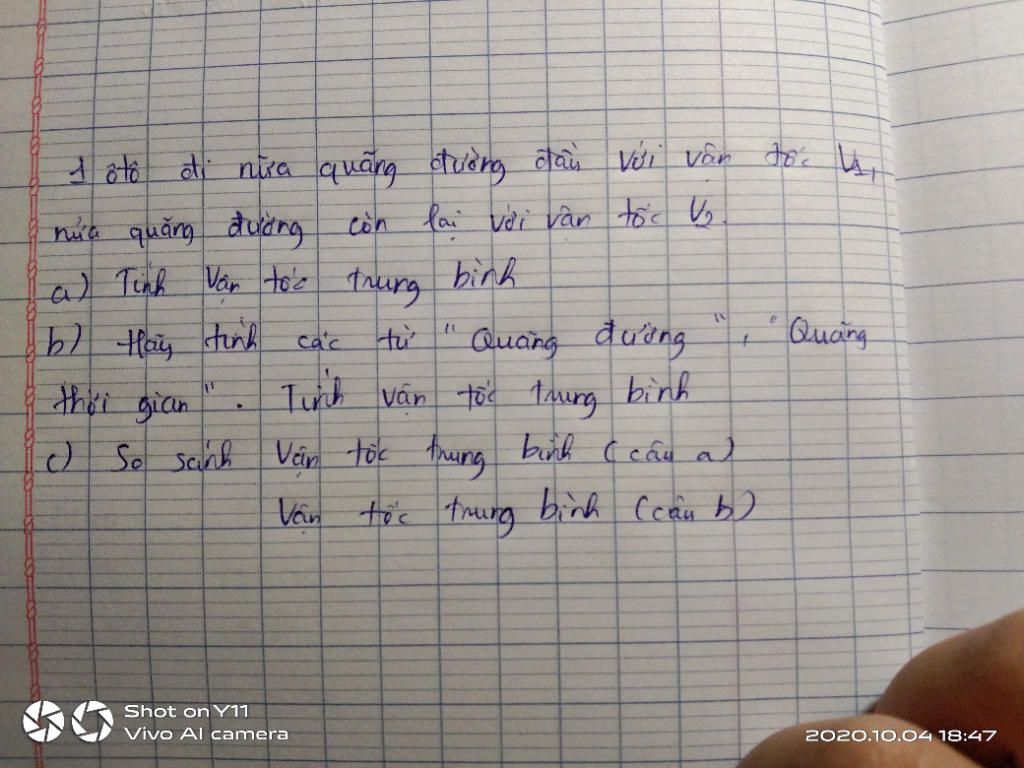 1 ôtô đi nữa quãng đường đầu với vận tốc V1,
nửa quãng đường còn lại với vận tốc V2.
a) Tính Vận tốc trung bình
b) Hãy tính các từ "Quãng đường", "Quãng
thời gian". Tính vận tốc trung bình
c) So sánh Vận tốc trung bình (câu a)
Vận tốc trung bình (câu b)
Shot on Y11
Vivo AI camera
2020.10.04 18:47